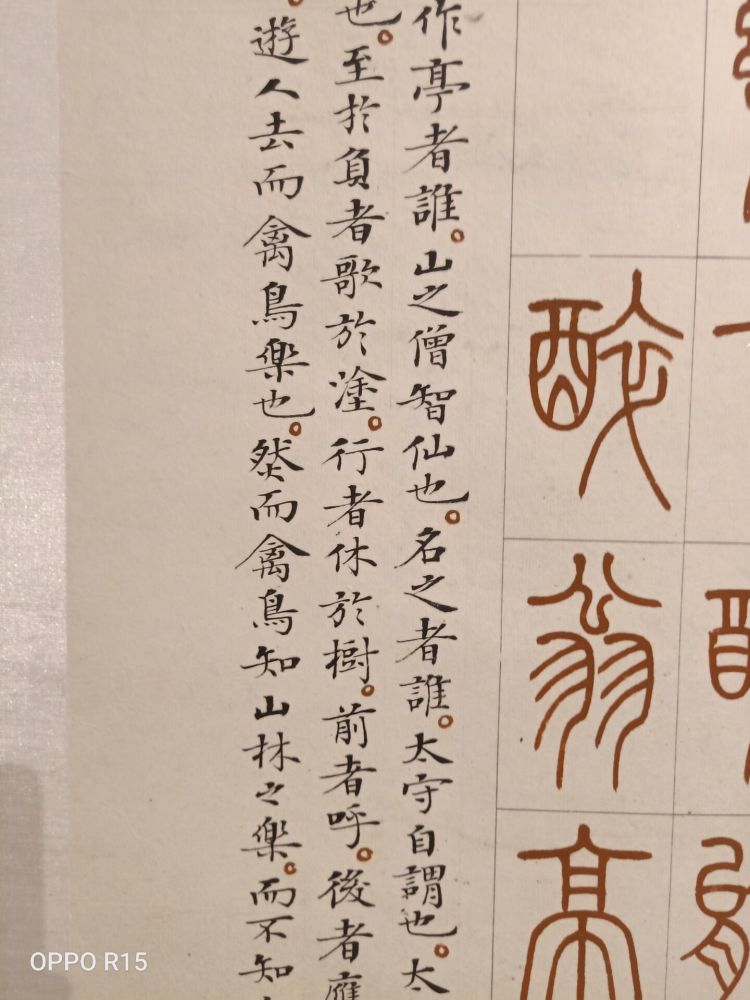 醉翁亭
作亭者誰。山之僧智仙也。名之者誰。太守自謂也。太
也。至於負者歌於塗。行者休於樹。前者呼。後者應
遊人去而禽鳥樂也。然而禽鳥知山林之樂。而不知
OPPO R15